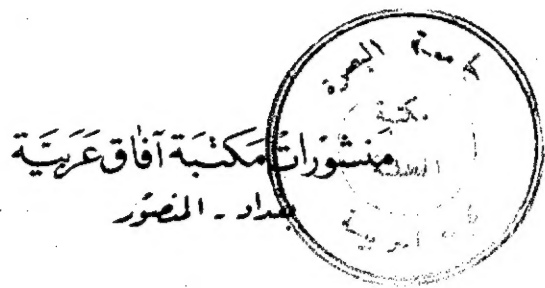 منشورات مكتبة آفاق عربية
بغداد - المنصور
جامعة البصرة
مكتبة